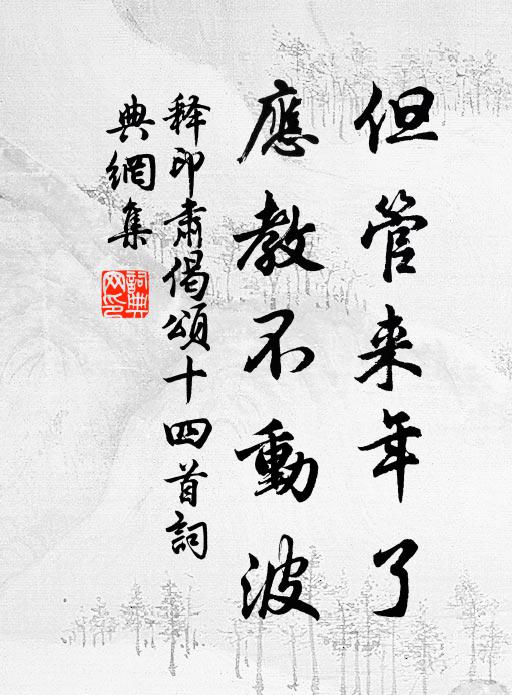 但管来年了
應教不動波
释印肃偈頌十四首詞
典網集
詞典网印